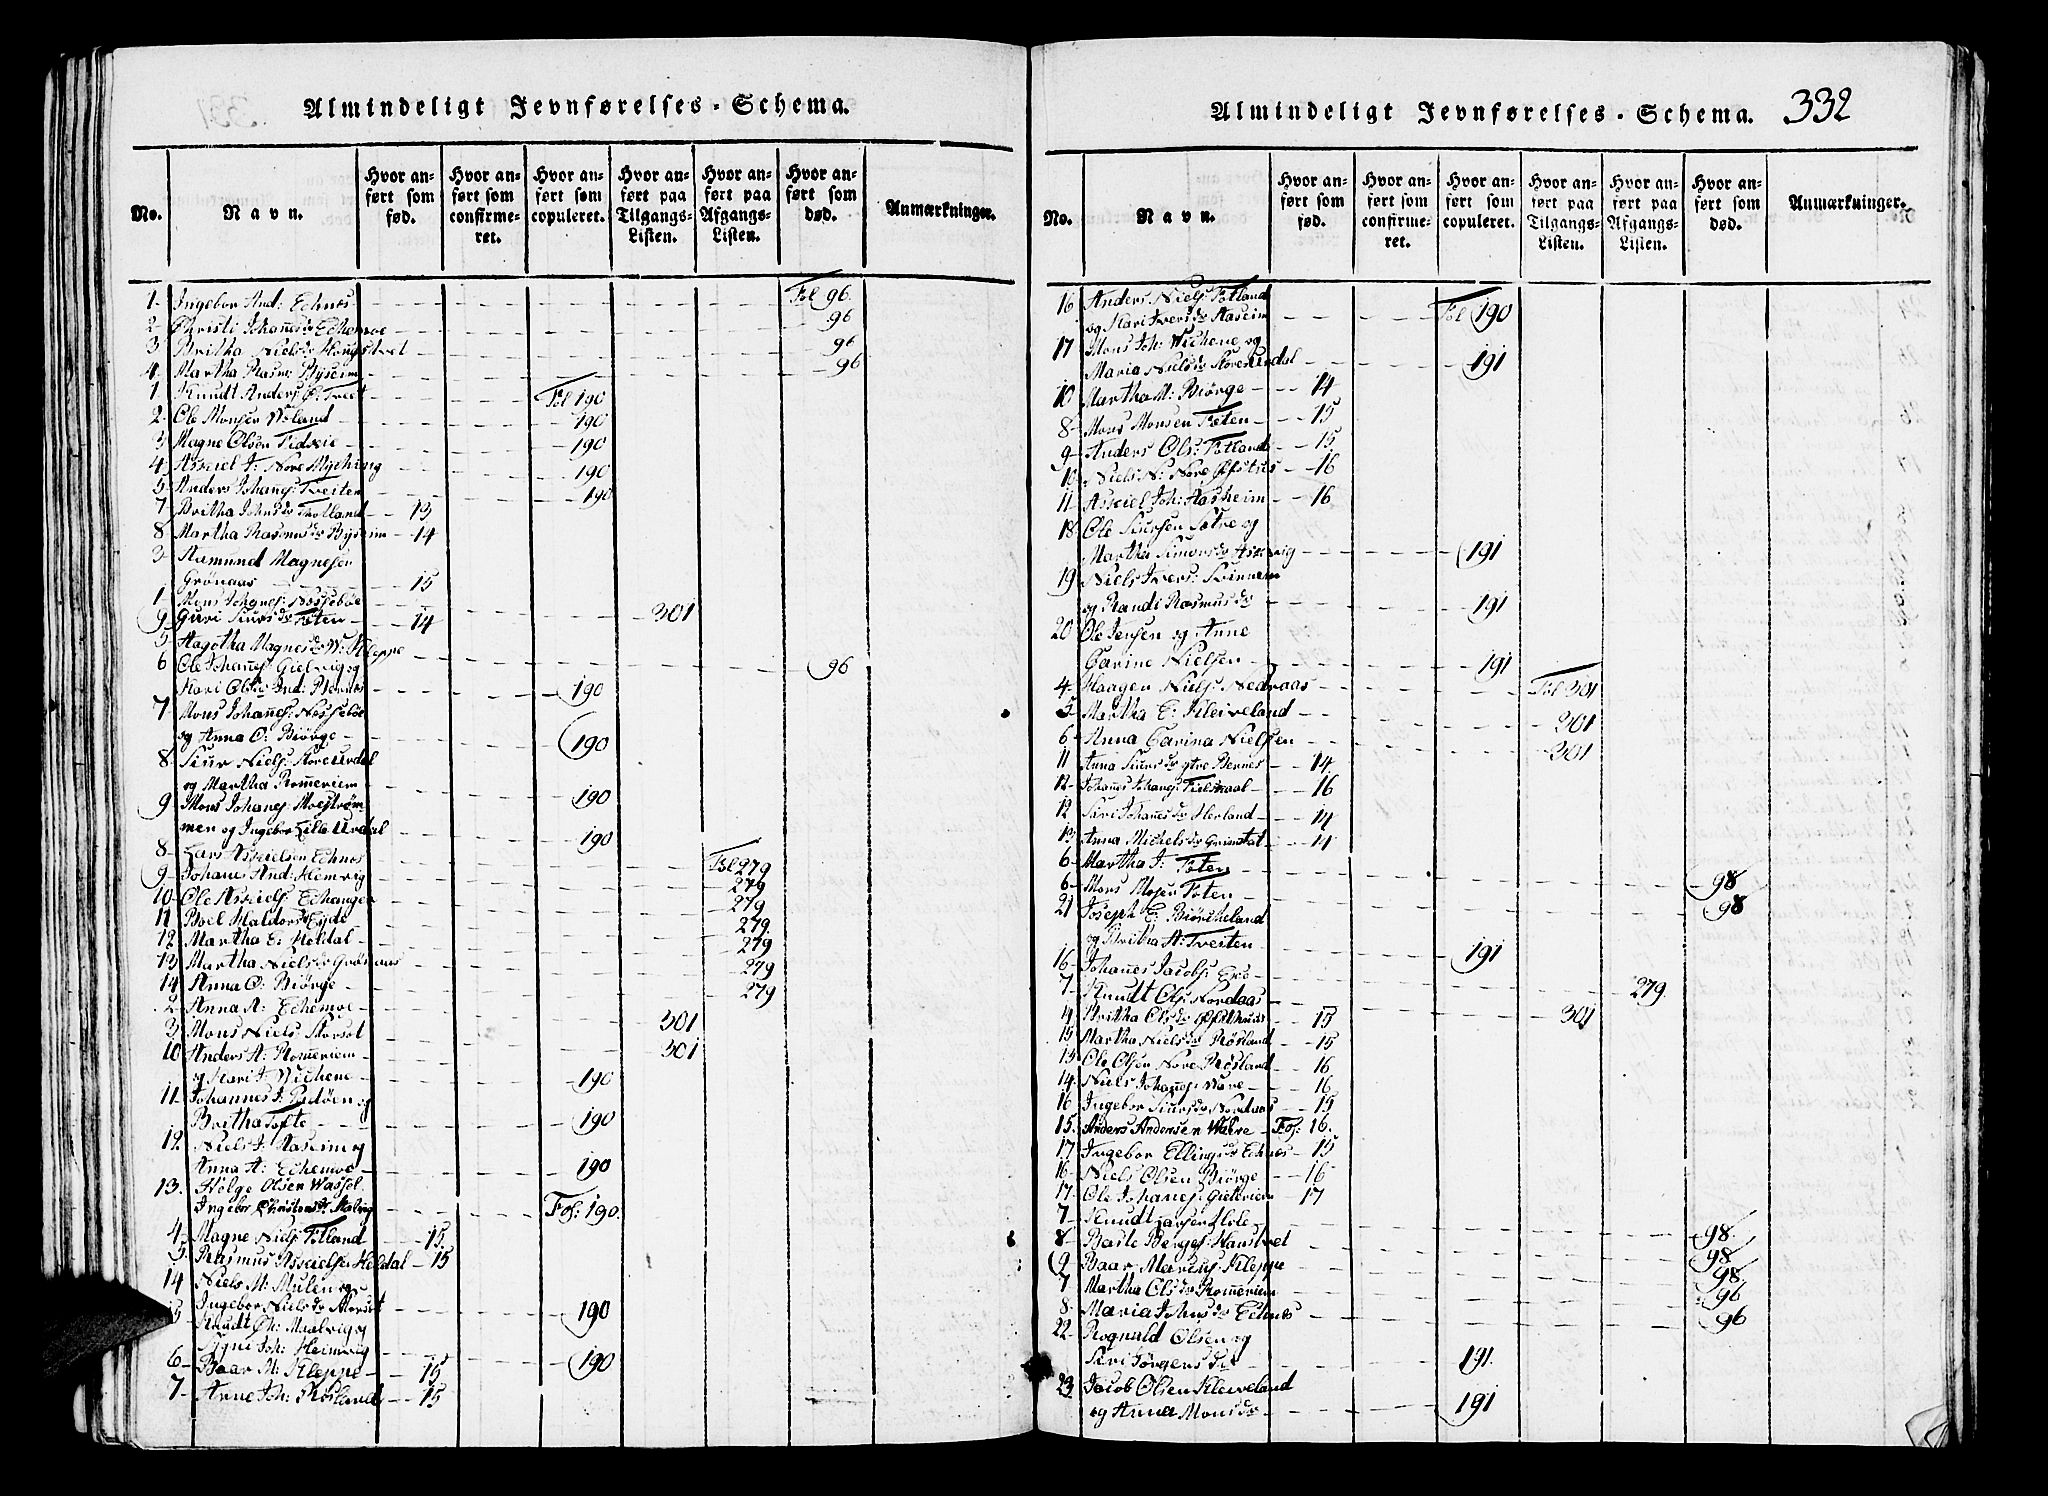 Almindeligt Jevnførelses-Schema.
No.
Navn.
Hvor an-
ført som
fød.
Hvor an-
ført som
confirme-
ret.
Hvor an-
ført som
copuleret.
Hvor an-
ført paa
Tilgangs-
Listen.
Hvor an-
ført paa
Afgangs-
Listen.
Hvor an-
ført som
død.
Anmærkninger.
1- Ingebor And: Echnes Fol 96.
2- Christi Johanesdr Echemoe 96
3 Britha Nielsdr Hougstvet 96
4- Martha Rasm: Bÿseim 96
1. Knudt Anders Ø: Tveit Fol 190
2- Ole Monsen 190
3. Magne Olsen 190
4 Asseiel J: Nore Mÿching 190
5 Anders Johanes: Tveiten 190
7 Britha Johnsdr Fotland 13
8 Martha Rasmusdr Bÿseim 14
3- Aamund Magnesen
Grönaas 15
1 Mons Johanes: Nessebøe 301
9 Guri Siursdr Foten 14
5 Aagotha Magnesdr W: Kleppe 96
6 Ole Johanes: Gielvig og
Kari Olsdr Ind: 190
7 Mons Johanes: Nessebøe
og Anna O: Biørge 190
8. Siur Niels: Store Urdal
og Martha Romeriem 190
9 Mons Johanes: Moestrøm
men og Ingebor Lille Urdal 190
8- Lars Asseielsen Echnes Fol 279
9- Johans And: Hemvig 279
10 Ole Asseiels: Echanger 279
11 Boel Haldorsdr Eÿde 279
12 Martha E: Heldal 279
13 Martha Nielsdr Grönaas 279
14 Anna O: Biørge 279
2- Anna A: Echemoe 301
3 Mons Niels: Storset 301
10 Anders A: Romeriem
og Kari J: Wichene 190
11- Johannes J: Radöen og
Britha Tofte 190
12 Niels J: Haseim og
Anna A: Echemoe 190
13. Helge Olsen Wassel
Ingebor Christensdr Fos: 190.
4- Magne Niels: Fotland 15.
5. Rasmus Asseielsen Heldal 15
14 Niels M: Mulen og
Ingebor Nielsdr 190
15 Knudt Ch: Maalvig og
Sygni Joh: Heimvig 190
6- Baar M: Kleppe 15
7- Arne Joh: Røsland 15
Almindeligt Jevnførelses-Schema. 332
No.
Navn.
Hvor an-
ført som
fød.
Hvor an-
ført som
confirme-
ret.
Hvor an-
ført som
copuleret.
Hvor an-
ført paa
Tilgangs-
Listen.
Hvor an-
ført paa
Afgangs-
Listen.
Hvor an-
ført som
død.
Anmærkninger.
16 Anders Niels: Fotland
og Kari Iversdr Haseim Fol 190
17 Mons Joh: Wichene og
Maria Nielsdr Store Urdal 191
10 Martha M: Biørge 14
8- Mons Monsen Foten 15
9- Anders Ols: Fotland 15
10 Niels N: Nore 16
11 Asseiel Joh: Hasheim 16
18 Ole Siursen Sætre og
Martha Simonsdr 191
19 Niels Ivers: Kvinnem
og Randi Rasmusdr 191
20 Ole Jensen og Anne
Carine Nielsen 191
4- Haagen Niels: Nedraas Fol 301
5- Martha E: Kleiveland 301
6- Anna Carina Nielsen 301
11 Anna Siursdr Bernes 14
12- Johanes Johans: 16
12 Siri Johanesdr Herland 14
13 Anna Michelsdr Grimstat 14
6- Martha J: Foten 98
6- Mons Mosen Foten 98
21 Joseph E: Biørcheland
og Britha A: Tveiten 191
16- Johanes Jacobs: 279
7- Knudt Ols: Nordaas 301
14 Britha Olsdr 15
15 Martha Nielsdr Røsland 15
13 Ole Olsen Nore Røsland 16
14 Niels Johanes: 16
16 Ingebor Siursdr Nordaas 15
15. Anders Andersen Fos: 16.
17 Ingebor Ellingsdr Echnes 15
16- Niels Olsen Biørge 16
17- Ole Johanes: 17
7- Knudt 98.
8- Berges: Haustvet 98
9 Baar Kleppe 98
7 Martha Olsdr Romeriem 96
8. Maria Johnsdr Echnes 96
22- Rognald Olsen og
Siri Jörgensdr 191.
23 Jacob Olsen Kleiveland
og Anna Monsdr 191